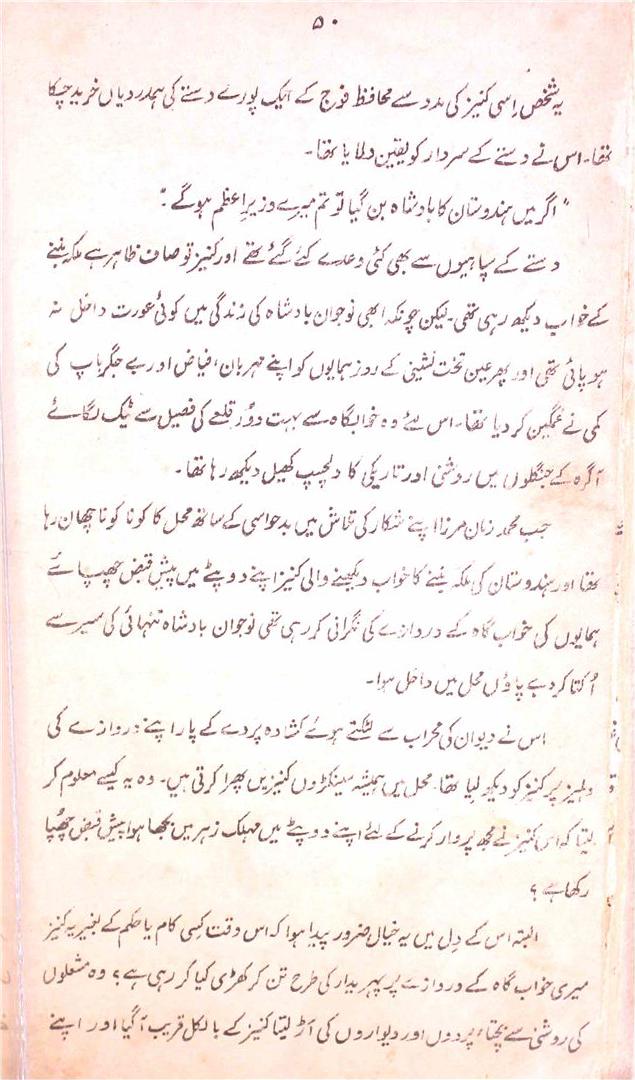 ۵۰
یہ شخص اِسی کنیز کی مدد سے محافظ فوج کے ایک پورے دستے کی ہمدردیاں خرید چکا
تھا۔ اس نے دستے کے سردار کو یقین دلایا تھا۔
"اگر میں ہندوستان کا بادشاہ بن گیا تو تم میرے وزیرِ اعظم ہو گے۔"
دستے کے سپاہیوں سے بھی کئی وعدے کئے گئے تھے اور کنیز تو صاف ظاہر ہے ملکہ بننے
کے خواب دیکھ رہی تھی۔ لیکن چونکہ ابھی نوجوان بادشاہ کی زندگی میں کوئی عورت داخل نہ
ہو پائی تھی اور پھر عین تخت نشینی کے روز ہمایوں کو اپنے مہربان، فیاض اور بے جگر باپ کی
کمی نے غمگین کر دیا تھا۔ اس لئے وہ خوابگاہ سے بہت دُور قلعے کی فصیل سے ٹیک لگائے
آگرہ کے جنگلوں میں روشنی اور تاریکی کا دلچسپ کھیل دیکھ رہا تھا۔
جب محمد زمان مرزا اپنے شکار کی تلاش میں بدحواسی کے ساتھ محل کا کونا کونا چھان رہا
تھا اور ہندوستان کی ملکہ بننے کا خواب دیکھنے والی کنیز اپنے دوپٹے میں پیش قبض چھپائے
ہمایوں کی خواب گاہ کے دروازے کی نگرانی کر رہی تھی نوجوان بادشاہ تنہائی کی سیر سے
اُکتا کر دبے پاؤں محل میں داخل ہوا۔
اس نے دیوان کی محراب سے لٹکتے ہوئے کشادہ پردے کے پار اپنے دروازے کی
دہلیز پر کنیز کو دیکھ لیا تھا۔ محل میں ہمیشہ سینکڑوں کنیزیں پھرا کرتی ہیں۔ وہ یہ کیسے معلوم کر
لیتا کہ اس کنیز نے مجھ پر وار کرنے کے لئے اپنے دوپٹے میں مہلک زہر میں بجھا ہوا پیش قبض چھپا
رکھا ہے؟
البتہ اس کے دِل میں یہ خیال ضرور پیدا ہوا کہ اس وقت کسی کام یا حکم کے بغیر یہ کنیز
میری خواب گاہ کے دروازے پر پہریدار کی طرح تن کر کھڑی کیا کر رہی ہے؟ وہ مشعلوں
کی روشنی سے بچتا، پردوں اور دیواروں کی آڑ لیتا کنیز کے بالکل قریب آگیا اور اپنے